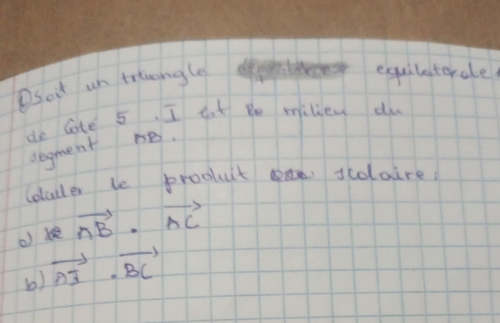 ① soit un triuangle equilaterale
de côté 5 . I est le milieu du
segment AB.
Calculer le produit scolaire :
a) AB . AC
b) AI . BC